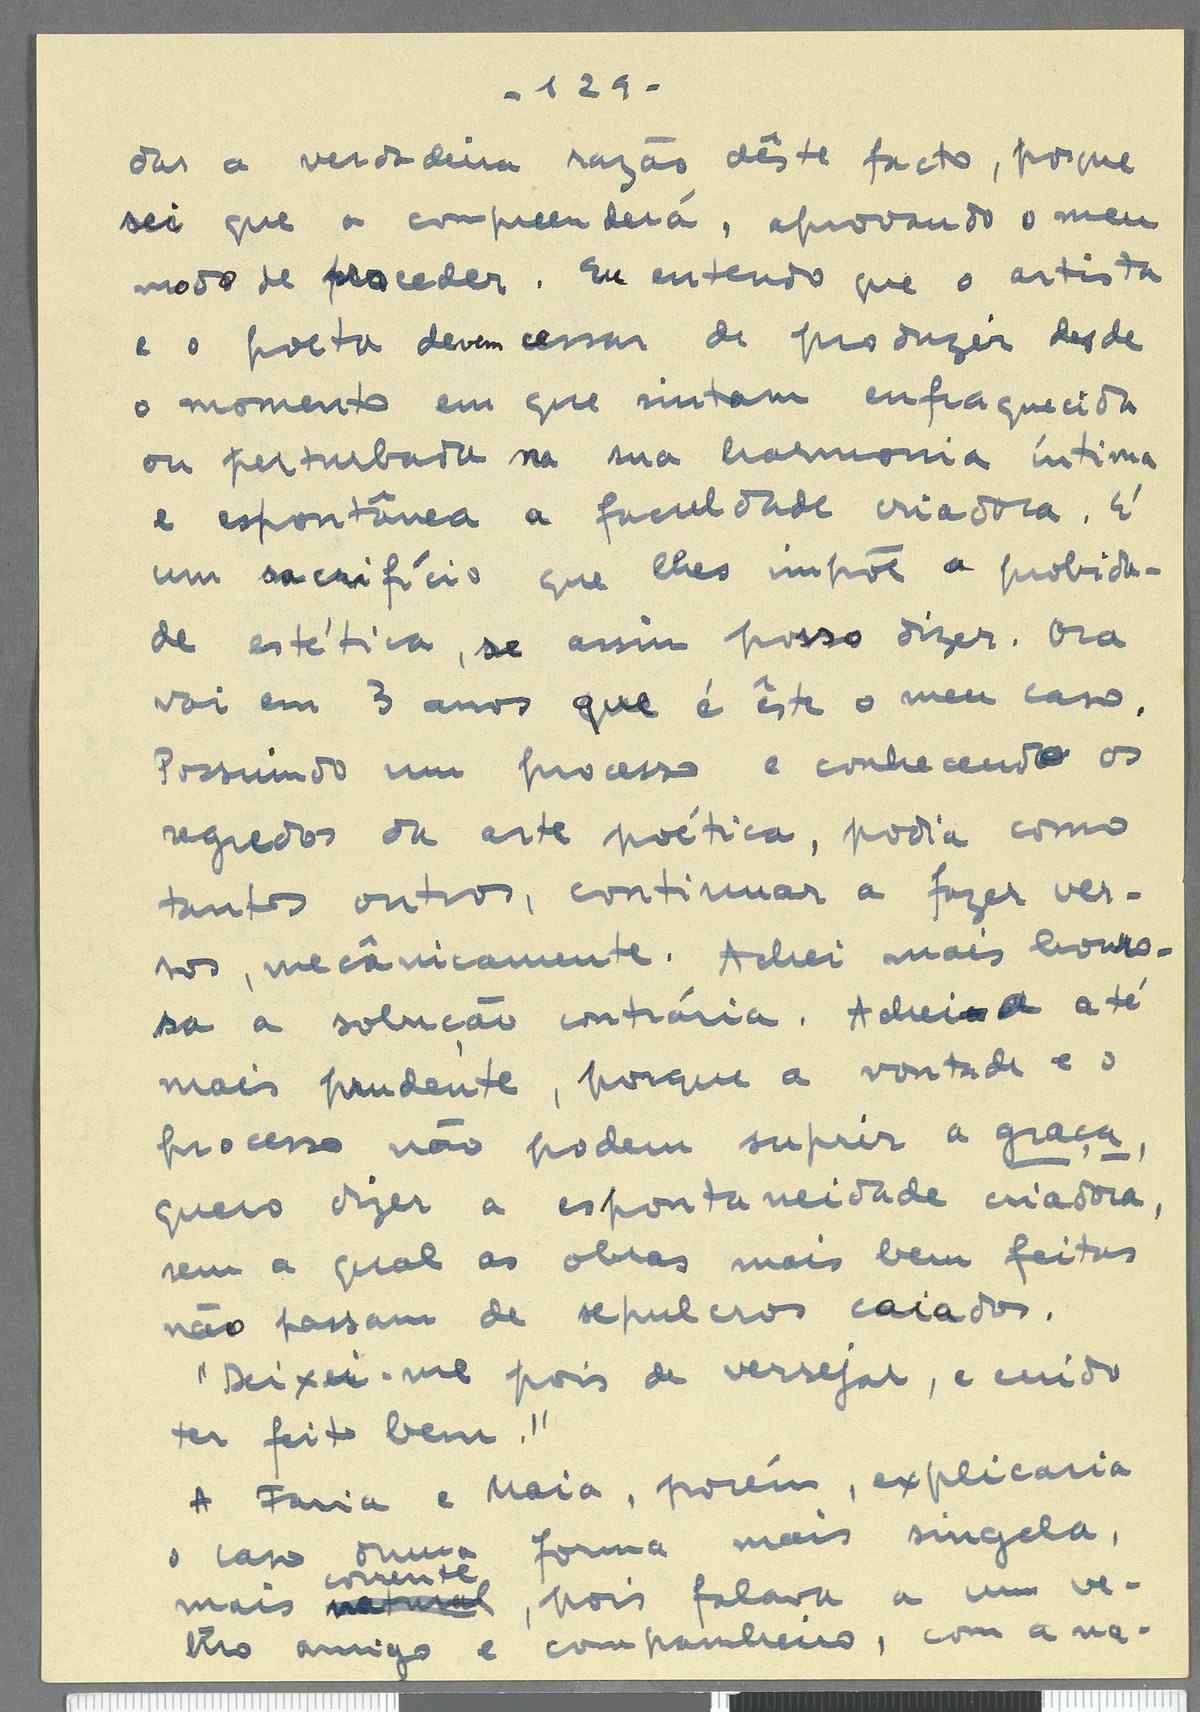 - 129 -
dar a verdadeira razão dêste facto, porque
sei que a compreenderá, aprovando o meu
modo de proceder. Eu entendo que o artista
e o poeta devem cessar de produzir desde
o momento em que sintam enfraquecida
ou perturbada na sua harmonia íntima
e espontânea a faculdade criadora. É
um sacrifício que lhes impõe a probida-
de estética, se assim posso dizer. Ora
vai em 3 anos que é êste o meu caso.
Possuindo um processo e conhecendo os
segredos da arte poética, podia como
tantos outros, continuar a fazer ver-
sos, mecânicamente. Achei mais honro-
sa a solução contrária. Achei-a até
mais prudente, porque a vontade e o
processo não podem suprir a graça,
quero dizer a espontaneidade criadora,
sem a qual as obras mais bem feitas
não passam de sepulcros caiados.
"Deixei-me pois de versejar, e cuido
ter feito bem."
A Faria e Maia, porém, explicaria
o caso duma forma mais singela,
corrente
mais natural, pois falava a um ve-
lho amigo e companheiro, com a na-